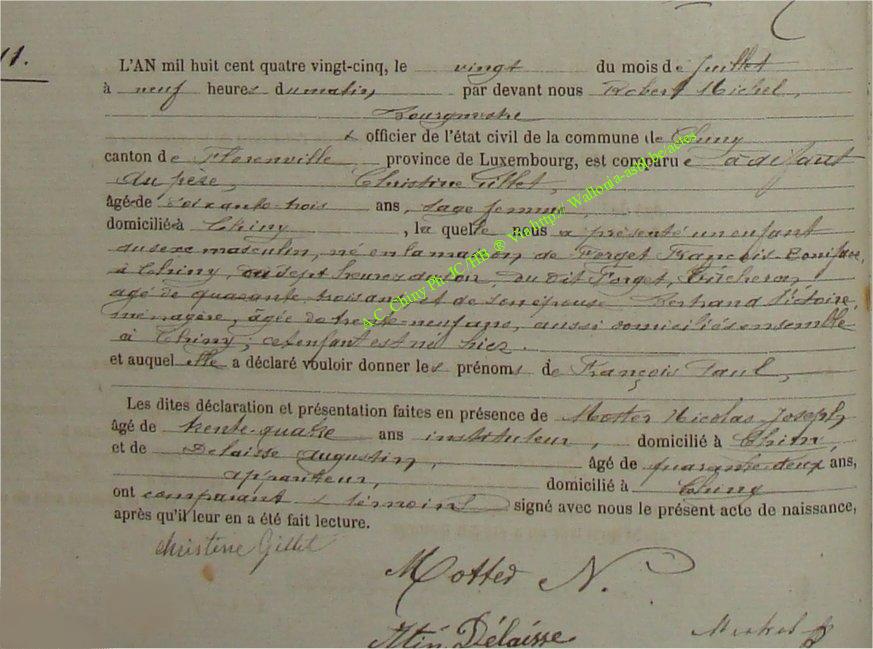 11.
L'AN mil huit cent quatre vingt-cinq, le vingt du mois de Juillet
à neuf heures du matin, par devant nous Robert Michel,
Bourgmestre
officier de l'état civil de la commune de Chiny
canton de Florenville province de Luxembourg, est comparue à défaut
du père, Christine Gillet,
âgée de soixante-trois ans, sage femme,
domiciliée à Chiny, laquelle nous a présenté un enfant
du sexe masculin, né en la maison de Forget François-Boniface,
à Chiny, à sept heures du soir, du dit Forget, bûcheron,
agé de quarante trois ans et de son épouse Bertrand Victoire,
ménagère, âgée de trente-neuf ans, aussi domiciliés ensemble
à Chiny; cet enfant est né hier.
et auquel elle a déclaré vouloir donner les prénoms de François Paul,
Les dites déclaration et présentation faites en présence de Motter Nicolas Joseph,
âgé de trente-quatre ans instituteur, domicilié à Chiny,
et de Delaisse Augustin, âgé de quarante-deux ans,
appariteur, domicilié à Chiny
ont comparant & témoins signé avec nous le présent acte de naissance,
après qu'il leur en a été fait lecture.
Christine Gillet
Motter N.
Atin Délaisse
Michel
A.C. Chiny Ph JC /HB ® Via http:// Wallonia-asbl.be/actes